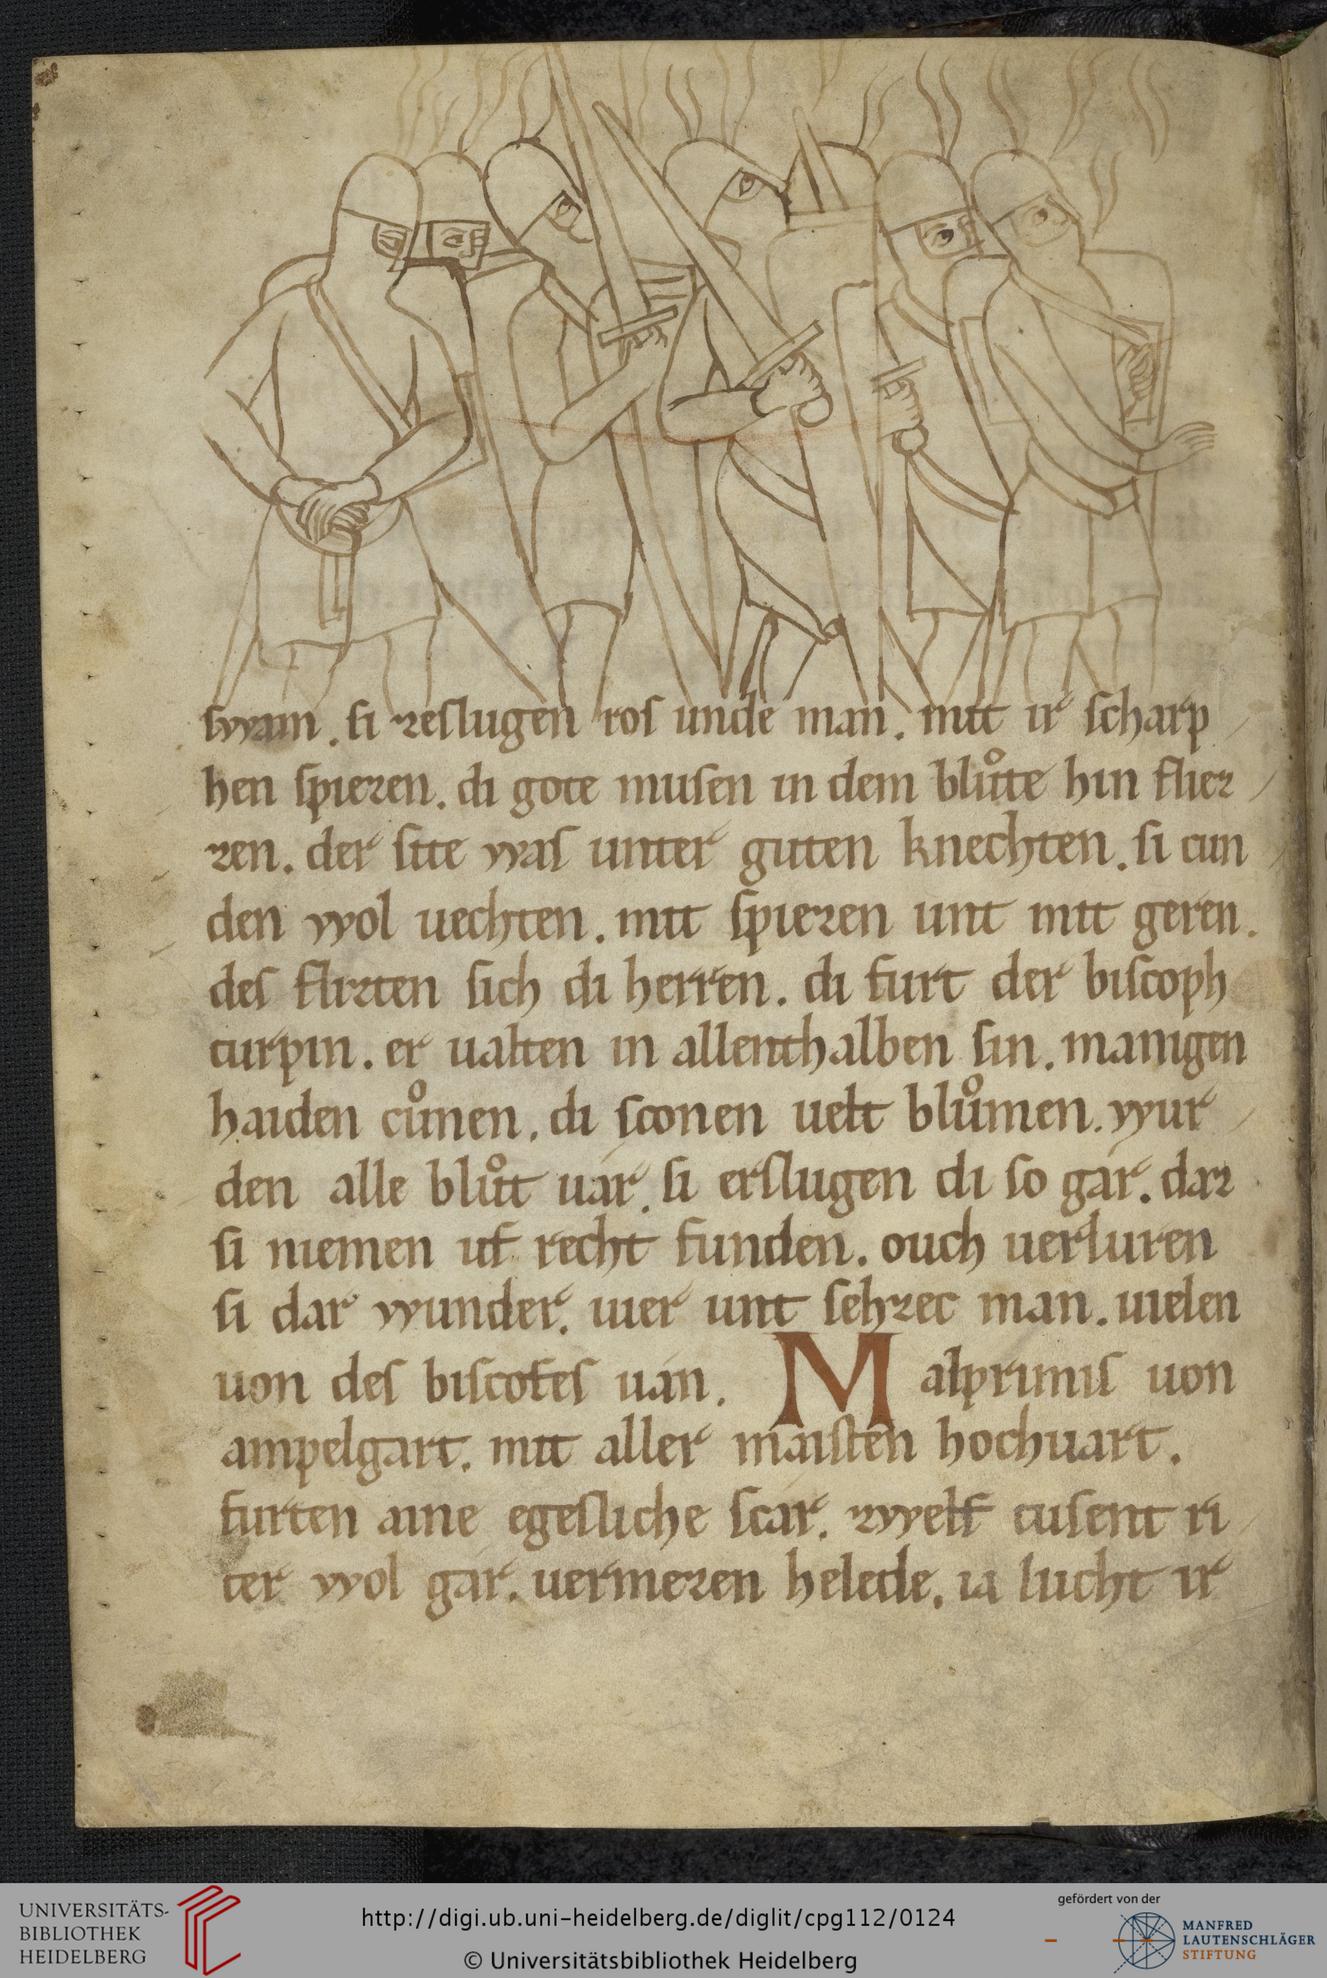 swam. si zeslugen ros unde man. mit ir scharp
hen spiezen. di gote musen in dem blůte hin fliez
zen. der site was unter guten knechten. si cun
den wol uechten. mit spiezen unt mit geren.
des flizten sich di herren. di furt der biscoph
turpin. er ualten in allenthalben sin. manigen
haiden cůnen. di sconen uelt blůmen. wur
den alle blůt uar. si erslugen di so gar. daz
si niemen uf recht funden. ouch uerluren
si dar wunder. uier unt sehzec man. uielen
uon des biscofes uan. Malprimis uon
ampelgart. mit aller maisten hochuart.
furten aine egesliche scar. zwelf tusent ri
ter wol gar. uermezen helede. ia lucht ir
UNIVERSITÄTS-
BIBLIOTHEK
HEIDELBERG
http://digi.ub.uni-heidelberg.de/diglit/cpg112/0124
© Universitätsbibliothek Heidelberg
gefördert von der
MANFRED
LAUTENSCHLÄGER
STIFTUNG